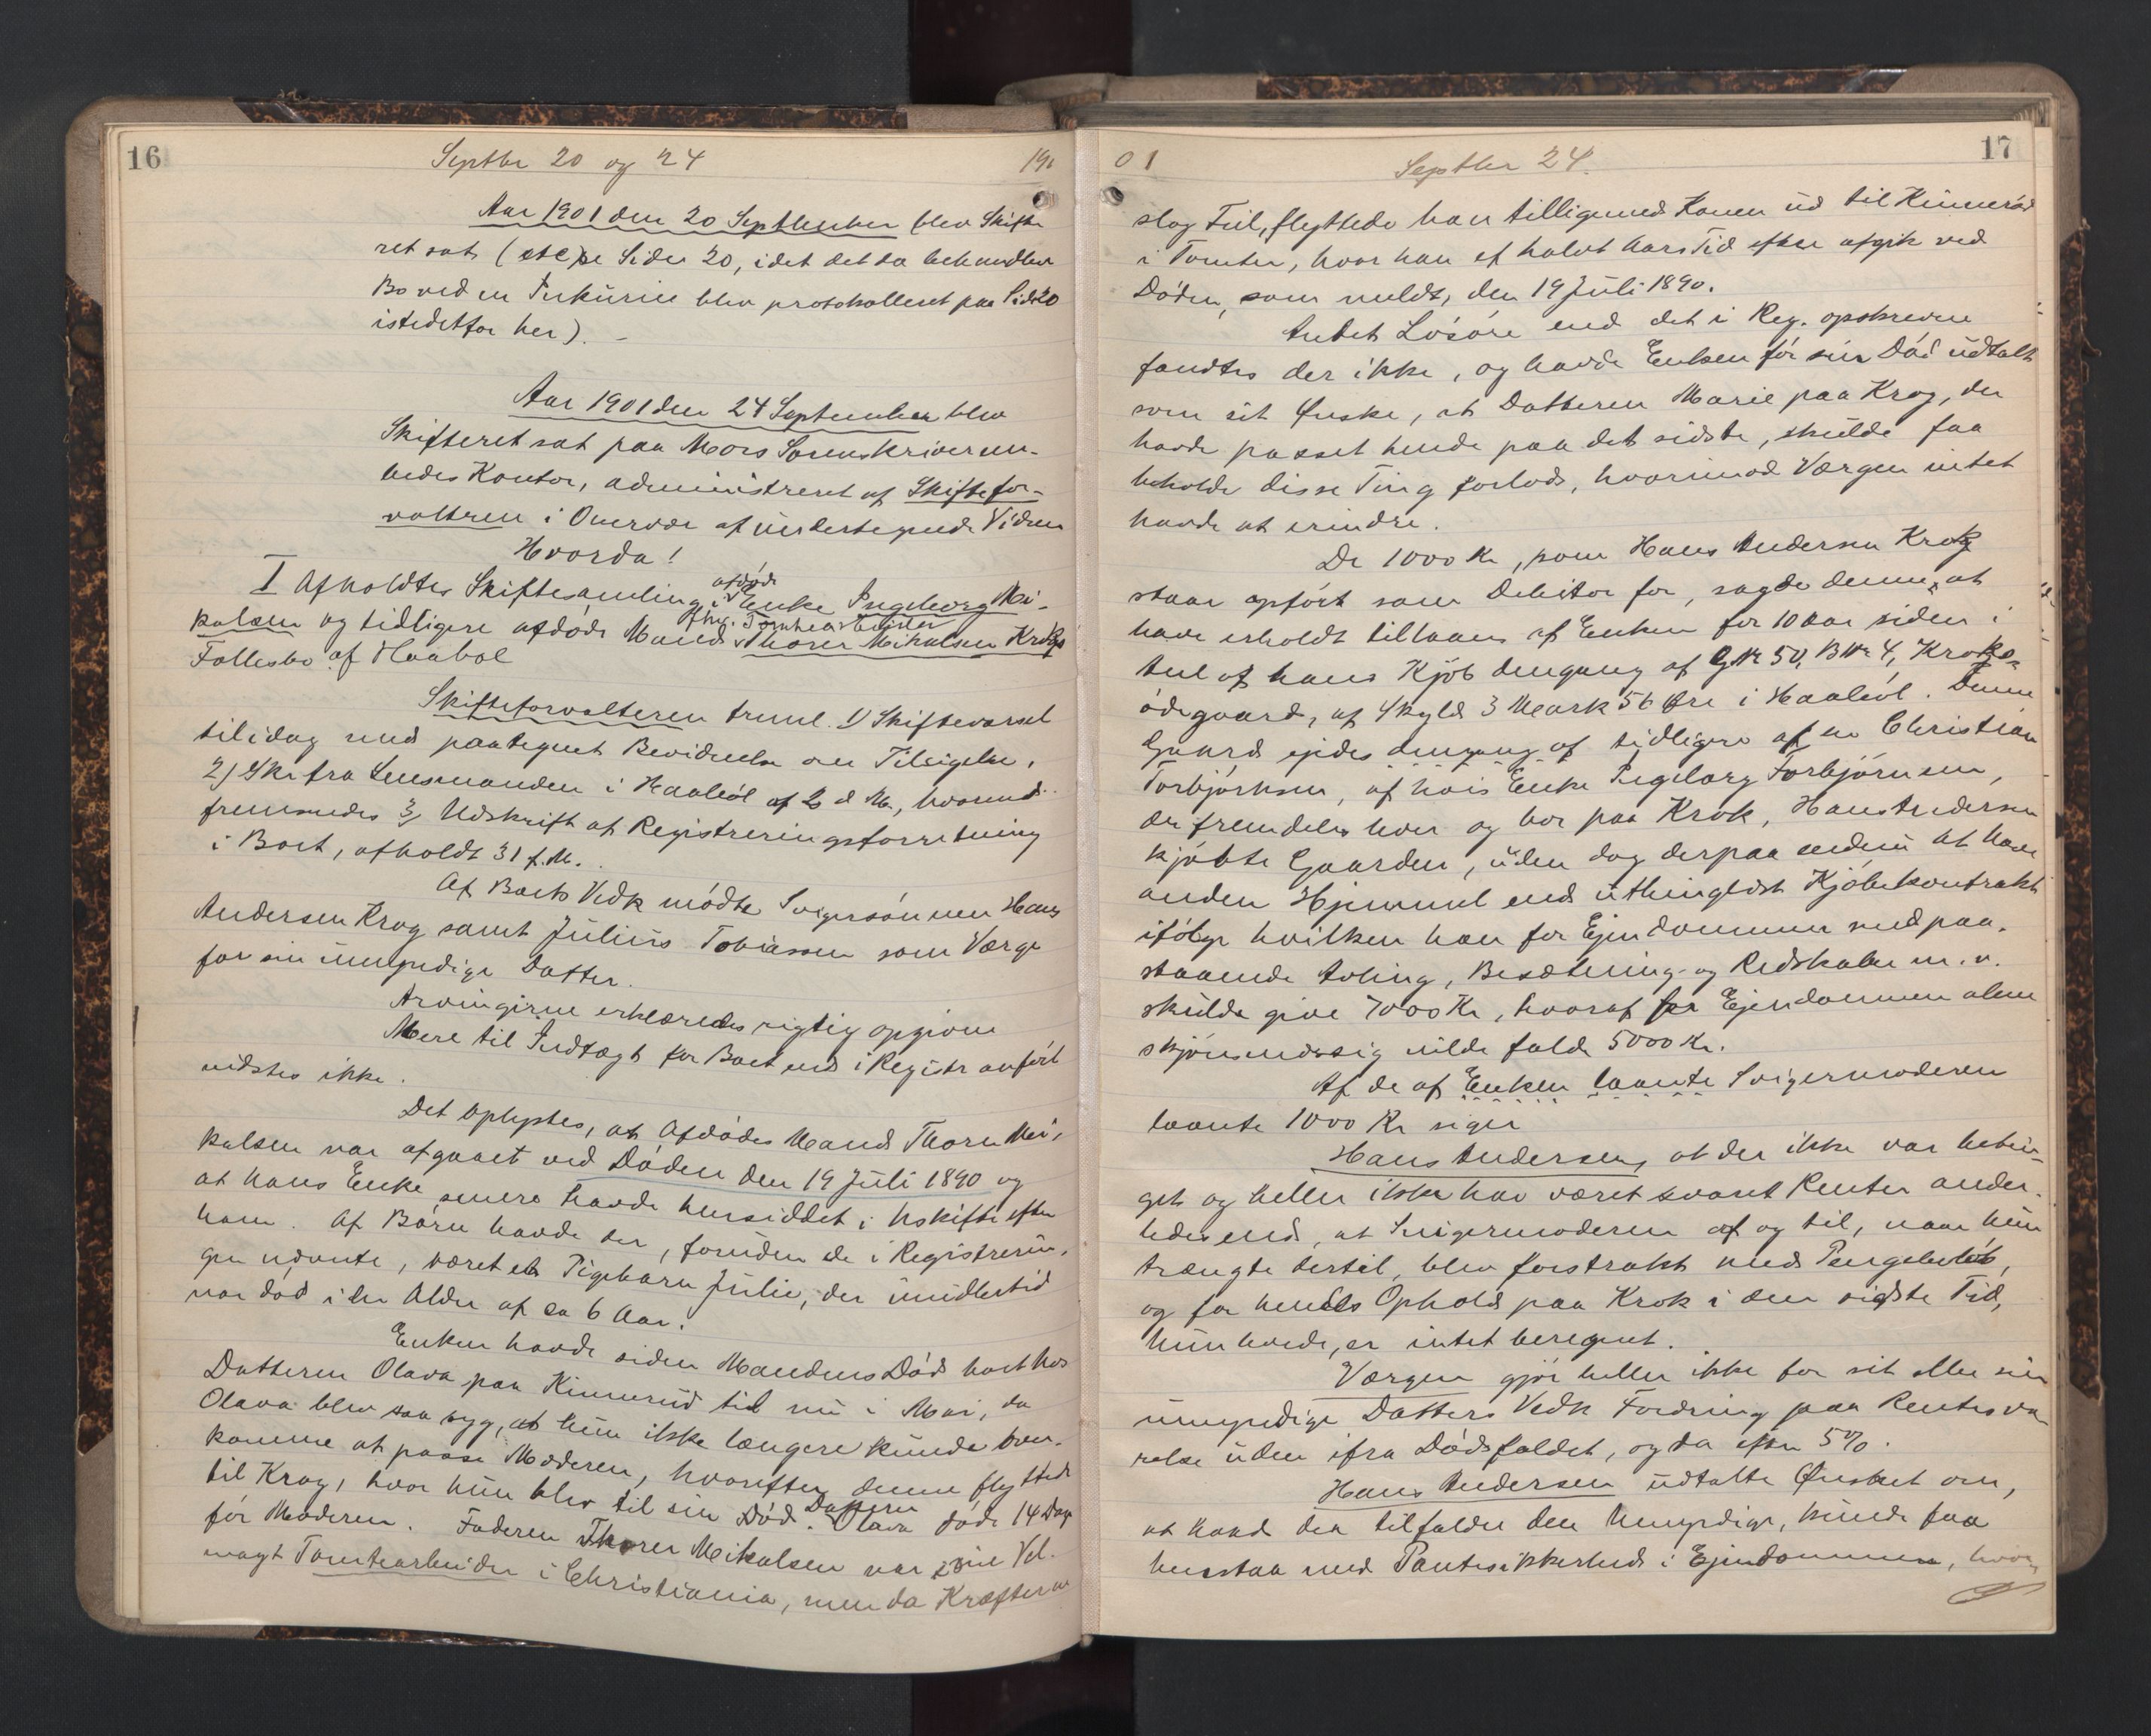 16
Septbr 20 og 24
190
Aar 1901 den 20 September blev Skifte
ret sat (etc se Siden 20, idet det da behandlede
Bo ved en Inkurie blev protokolleret paa Side 20
istedetfor her). -
Aar 1901 den 24 September blev
Skifteret sat paa Moss Sorenskriverem-
bedes Kontor, administreret af Skiftefor-
valtren i Overvær af undertegnede Vidner
Hvorda!
I Afholdtes Skiftesamling i afdøde Enke Ingeborg Mi-
kalsen og tidligere afdøde Mands fhv. Tomtearbeider Thorer Mikalsen Krogs
Fællesbo af Haabøl
Skifteforvalteren freml. 1) Skiftevarsel
til idag med paategnet Bevidnelse om Tilsigelse,
2) Skr fra Lensmanden i Haabøl af 2 d M., hvormed
fremsendes 3) Udskrift af Registreringsforretning
i Boet, afholdt 31 f.M.
Af Boets Vedk mødte Svigersønnen Hans
Andersen Krog samt Julius Tobiassen som Værge
for sin umyndige Datter.
Arvingerne erklæredes rigtig opgivne
Mere til Indtægt for Boet end i Registr anført
vidstes ikke.
Det oplystes, at Afdødes Mand Thorer Mi-
kalsen var afgaaet ved Døden den 19 Juli 1890 og
at hans Enke senere havde hensiddet i Uskifte efter
ham. Af Børn havde der, foruden de i Registrerin-
gen nævnte, været et Pigebarn Julie, der imidlertid
var død i en Alder af ca 6 Aar.
Enken havde siden Mandens Død boet hos
Datteren Olava paa Kinnerud til nu i Mai, da
Olava blev saa syg, at hun ikke længere kunde over-
komme at passe Moderen, hvorefter denne flyttede
til Krog, hvor hun blev til sin Død. Datteren Olava døde 14 Dage
før Moderen. Faderen Thorer Mikalsen var i sin Vel-
magt Tomtearbeider i Christiania, men da Kræfterne
01
Septbr 24.
17
slog Feil, flyttede han tilligemed Konen ud til Kinnerud
i Tomter, hvor han et halvt Aars Tid efter afgik ved
Døden, som meldt, den 19 Juli 1890.
Andet Løsøre end det i Reg. opskrevne
fandtes der ikke, og havde Enken før sin Død udtalt
som sit Ønske, at Datteren Marie paa Krog, der
havde passet hende paa det sidste, skulde faa
beholde disse Ting forlods, hvorimod Værgen intet
havde at erindre.
De 1000 Kr, som Hans Andersen Krog
staar opført som Debitor for, sagde denne, at
have erholdt tillaans af Enken for 10 Aar siden i
Anl af hans Kjøb dengang af GNr 50, BNr 4, Kroks-
ødegaard, af Skyld 3 Mark 56 Øre i Haabøl. Denne
Gaard ejedes dengang af tidligere af en Christian
Torbjørnsen, af hvis Enke Ingeborg Torbjørnsen,
der fremdeles lever og bor paa Krok, Hans Andersen
kjøbte Gaarden, uden dog derpaa endnu at have
anden Hjemmel end utinglæst Kjøbekontrakt
ifølge hvilken han for Ejendommen med paa-
staaende Avling, Besætning og Redskaber m. v.
skulde give 7000 Kr, hvoraf for Ejendommen alene
skjønsmæssig vilde falde 5000 Kr.
Af de af Enken laante Svigermoderen
laante 1000 Kr siger
Hans Andersen, at der ikke var betin-
get og heller ikke har været svaret Renter ander-
ledes end, at Svigermoderen af og til, naar hun
trængte dertil, blev forstrakt med Pengebeløb,
og for hendes Ophold paa Krok i den sidste Tid,
hun levde, er intet beregnet.
Værgen gjør heller ikke for sit eller sin
umyndige Datters Vedk Fordring paa Rentesva-
relse uden ifra Dødsfaldet, og da efter 5%.
Hans Andersen udtalte Ønsket om,
at hvad der tilfalder den Umyndige, kunde faa
henstaa med Pantesikkerhed i Ejendommen, hvor